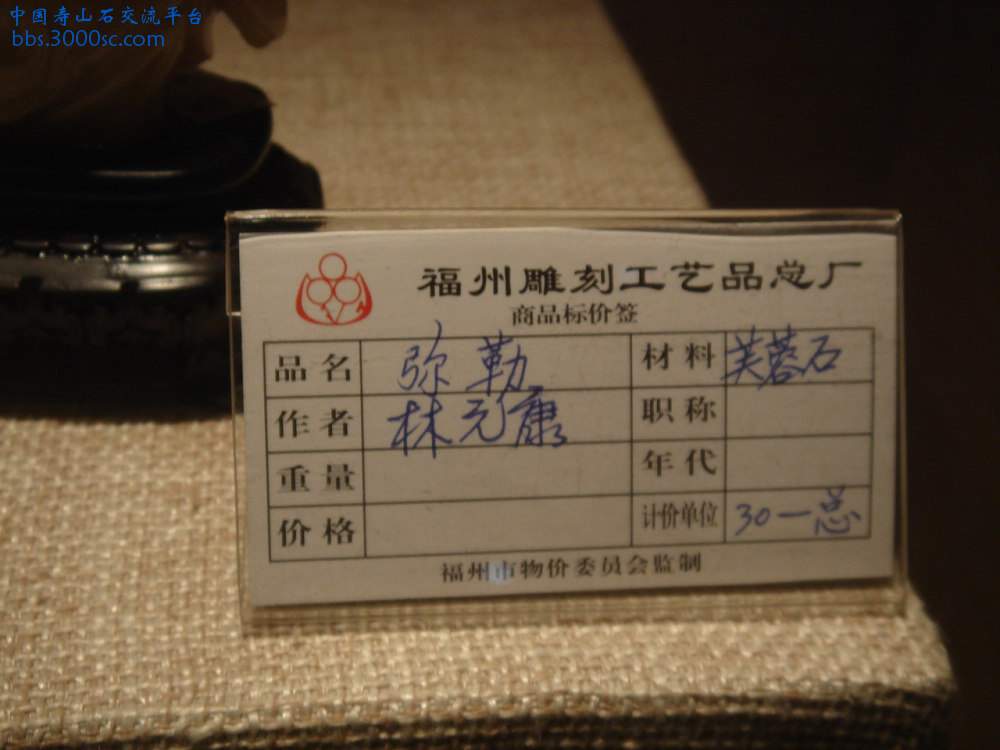 中国寿山石交流平台
bbs.3000sc.com
福州雕刻工艺品总厂
商品标价签
品名 弥勒 材料 芙蓉石
作者 林元康 职称
重量 年代
价格 计价单位 30一总
福州市物价委员会监制